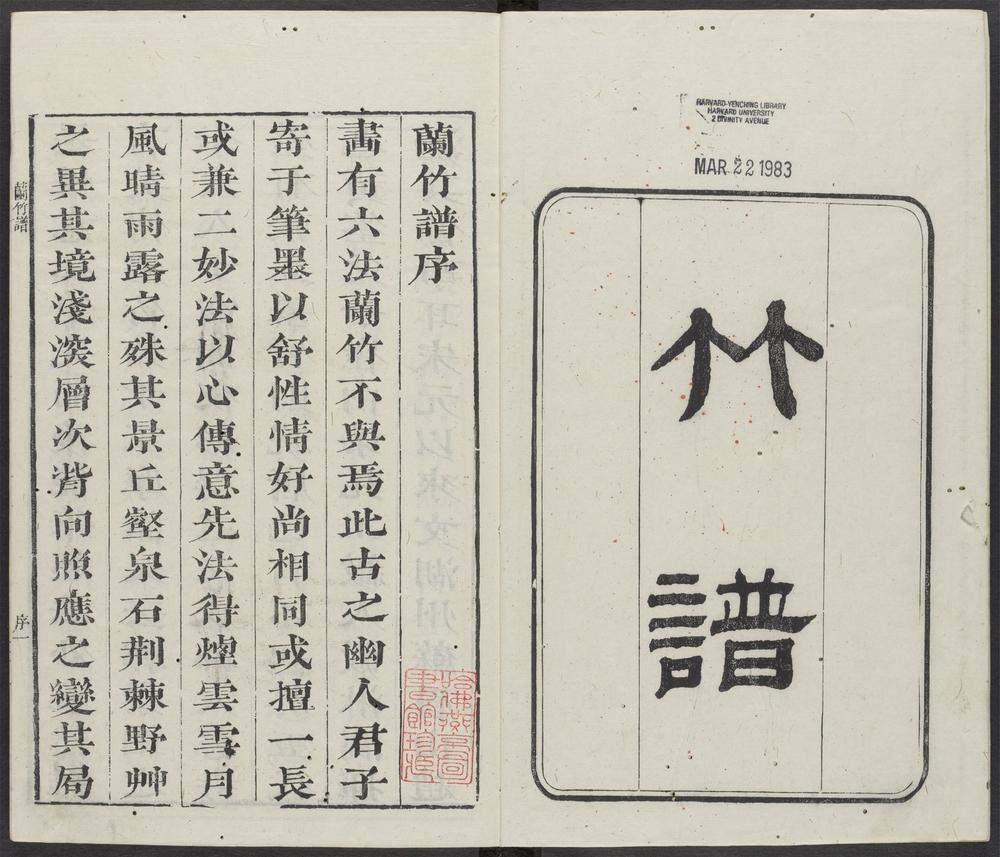 HARVARD-YENCHING LIBRARY
HARVARD UNIVERSITY
2 DIVINITY AVENUE
MAR 22 1983
竹譜
蘭竹譜序
畵有六法蘭竹不與焉此古之幽人君子
寄于筆墨以舒性情好尚相同或擅一長
或兼二妙法以心傳意先法得煙雲雪月
風晴雨露之殊其景丘壑泉石荆棘野艸
之異其境淺深層次背向照應之變其局
蘭竹譜
序一
哈佛燕京圖
書館珍藏